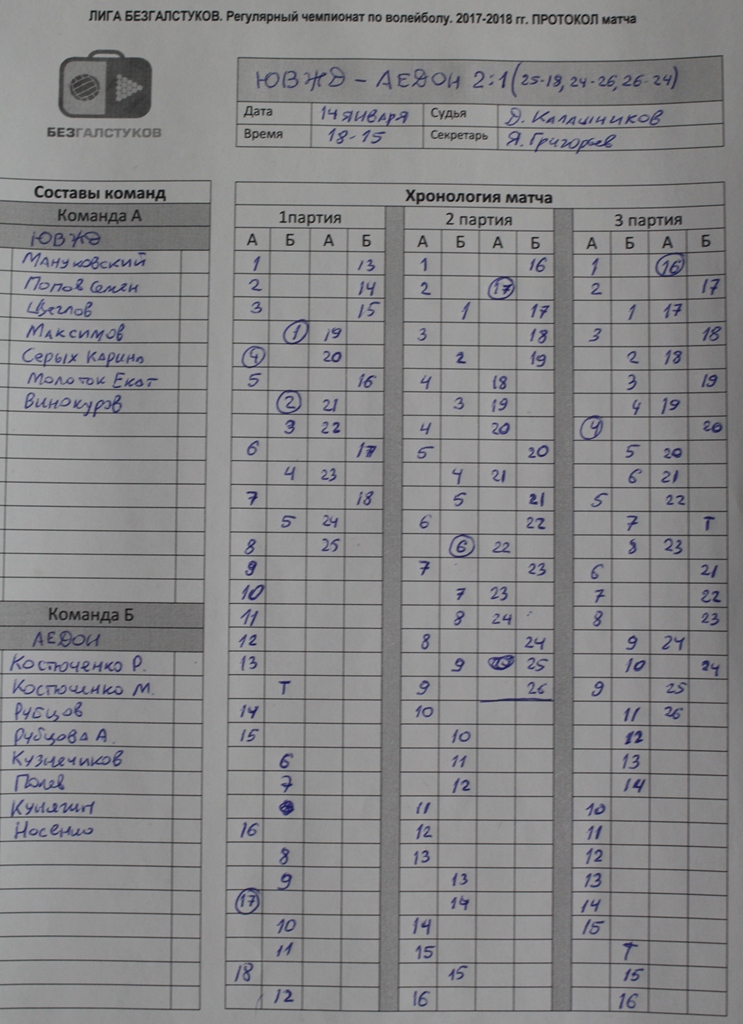 ЛИГА БЕЗГАЛСТУКОВ. Регулярный чемпионат по волейболу. 2017-2018 гг. ПРОТОКОЛ матча
БЕЗГАЛСТУКОВ
ЮВЖД – ЛЕДОН 2:1 (25-18, 24-26, 26-24)
Дата 14 ЯНВАРЯ Судья Д. Калашников
Время 18-15 Секретарь Я. Григорьев
Составы команд
Команда А
ЮВЖД
Мануковский
Попов Семен
Щеглов
Максимов
Серых Карина
Молоток Екат
Винокуров
Команда Б
ЛЕДОН
Костюченко Р.
Костюченко М.
Рубцов
Рубцова А.
Кузнечиков
Полев
Кулягин
Носенко
Хронология матча
1партия 2 партия 3 партия
А Б А Б А Б А Б А Б А Б
1 13 1 16 1 16
2 14 2 17 2 17
3 15 1 17 1 17
1 19 3 18 3 18
4 20 2 19 2 18
5 16 4 18 3 19
2 21 3 19 4 19
3 22 4 20 4 20
6 17 5 20 5 20
4 23 4 21 6 21
7 18 5 21 5 22
5 24 6 22 7 Т
8 25 6 22 8 23
9 7 23 6 21
10 7 23 7 22
11 8 24 8 23
12 8 24 9 24
13 9 25 10 24
Т 9 26 9 25
14 10 11 26
15 10 12
6 11 13
7 12 14
11 10
16 12 11
8 13 12
9 13 13
17 14 14
10 14 15
11 15 Т
18 15 15
12 16 16